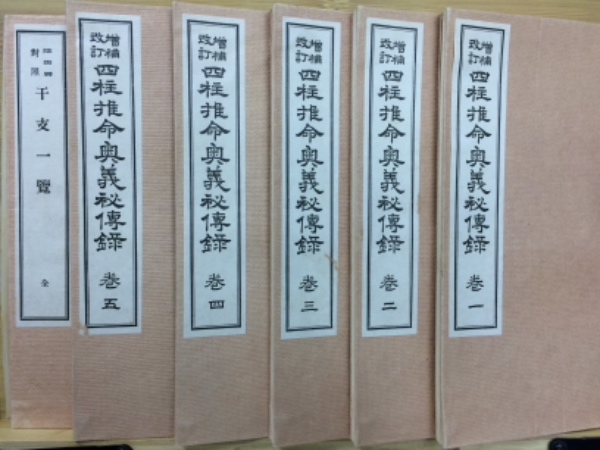 増補
改訂
四柱推命奥義秘傳録
巻一
増補
改訂
四柱推命奥義秘傳録
巻二
増補
改訂
四柱推命奥義秘傳録
巻三
増補
改訂
四柱推命奥義秘傳録
巻四
増補
改訂
四柱推命奥義秘傳録
巻五
對照
干支一覽
全